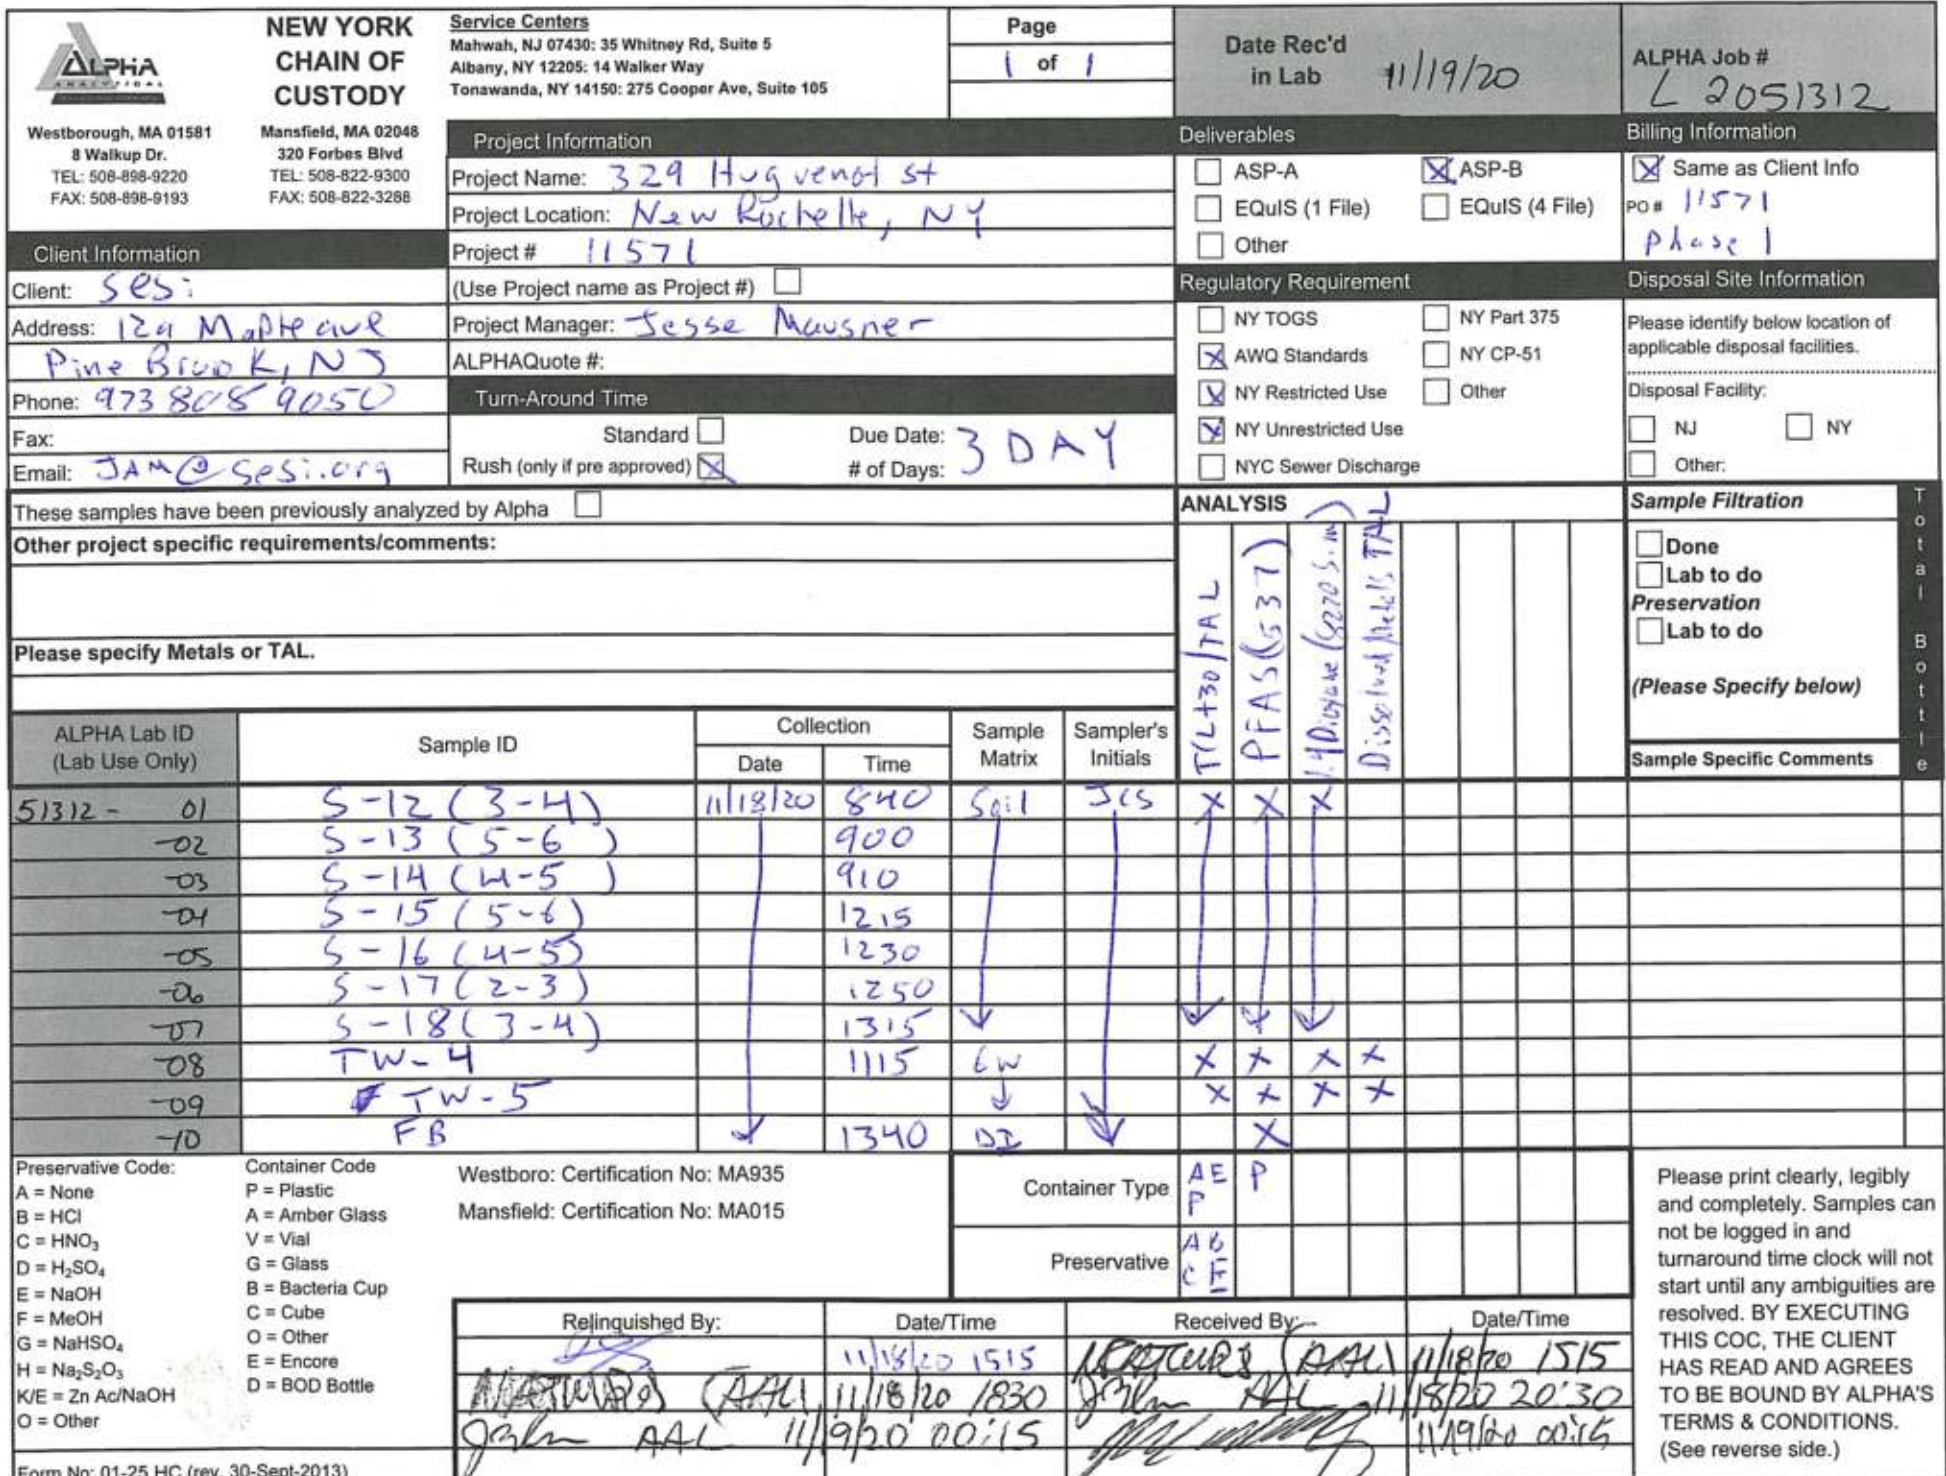 ALPHA
ANALYTICAL
Westborough, MA 01581
8 Walkup Dr.
TEL: 508-898-9220
FAX: 508-898-9193
NEW YORK
CHAIN OF
CUSTODY
Mansfield, MA 02048
320 Forbes Blvd
TEL: 508-822-9300
FAX: 508-822-3288
Service Centers
Mahwah, NJ 07430: 35 Whitney Rd, Suite 5
Albany, NY 12205: 14 Walker Way
Tonawanda, NY 14150: 275 Cooper Ave, Suite 105
Page
1 of 1
Date Rec'd
in Lab 11/19/20
ALPHA Job #
L2051312
Client Information
Client: SESI
Address: 12a Maple ave
Pine Brook, NJ
Phone: 973 808 9050
Fax:
Email: JAM@sesi.org
Project Information
Project Name: 329 Huguenot st
Project Location: New Rochelle, NY
Project # 11571
(Use Project name as Project #)
Project Manager: Jesse Mausner
ALPHAQuote #:
Turn-Around Time
Standard
Rush (only if pre approved) X
Due Date: 3 DAY
# of Days:
Deliverables
ASP-A
X ASP-B
EQuIS (1 File)
EQuIS (4 File)
Other
Regulatory Requirement
NY TOGS
NY Part 375
X AWQ Standards
NY CP-51
X NY Restricted Use
Other
X NY Unrestricted Use
NYC Sewer Discharge
Billing Information
X Same as Client Info
PO # 11571
Phase 1
Disposal Site Information
Please identify below location of
applicable disposal facilities.
Disposal Facility:
NJ
NY
Other:
These samples have been previously analyzed by Alpha
Other project specific requirements/comments:
Please specify Metals or TAL.
ANALYSIS
TCL+30/TAL
PFAS (537)
1,4 Dioxane (8270 Sim)
Dissolved Metals TAL
Sample Filtration
Done
Lab to do
Preservation
Lab to do
(Please Specify below)
Total Bottle
ALPHA Lab ID
(Lab Use Only)
Sample ID
Collection
Date
Time
Sample
Matrix
Sampler's
Initials
Sample Specific Comments
51312 - 01 S-12 (3-4) 11/18/20 840 Soil JCS X X X
-02 S-13 (5-6) 900
-03 S-14 (4-5) 910
-04 S-15 (5-6) 1215
-05 S-16 (4-5) 1230
-06 S-17 (2-3) 1250
-07 S-18 (3-4) 1315
-08 TW-4 1115 GW X X X X
-09 TW-5 X X X X
-10 FB 1340 DI X
Preservative Code:
A = None
B = HCl
C = HNO₃
D = H₂SO₄
E = NaOH
F = MeOH
G = NaHSO₄
H = Na₂S₂O₃
K/E = Zn Ac/NaOH
O = Other
Container Code
P = Plastic
A = Amber Glass
V = Vial
G = Glass
B = Bacteria Cup
C = Cube
O = Other
E = Encore
D = BOD Bottle
Westboro: Certification No: MA935
Mansfield: Certification No: MA015
Container Type AE P
P
Preservative AB
CF
Relinquished By:
Date/Time
Received By:
Date/Time
11/18/20 1515
(AAL) 11/18/20 1515
(AAL) 11/18/20 1830
AAL 11/18/20 20:30
AAL 11/19/20 00:15
11/19/20 00:15
Please print clearly, legibly
and completely. Samples can
not be logged in and
turnaround time clock will not
start until any ambiguities are
resolved. BY EXECUTING
THIS COC, THE CLIENT
HAS READ AND AGREES
TO BE BOUND BY ALPHA'S
TERMS & CONDITIONS.
(See reverse side.)
Form No: 01-25 HC (rev. 30-Sept-2013)